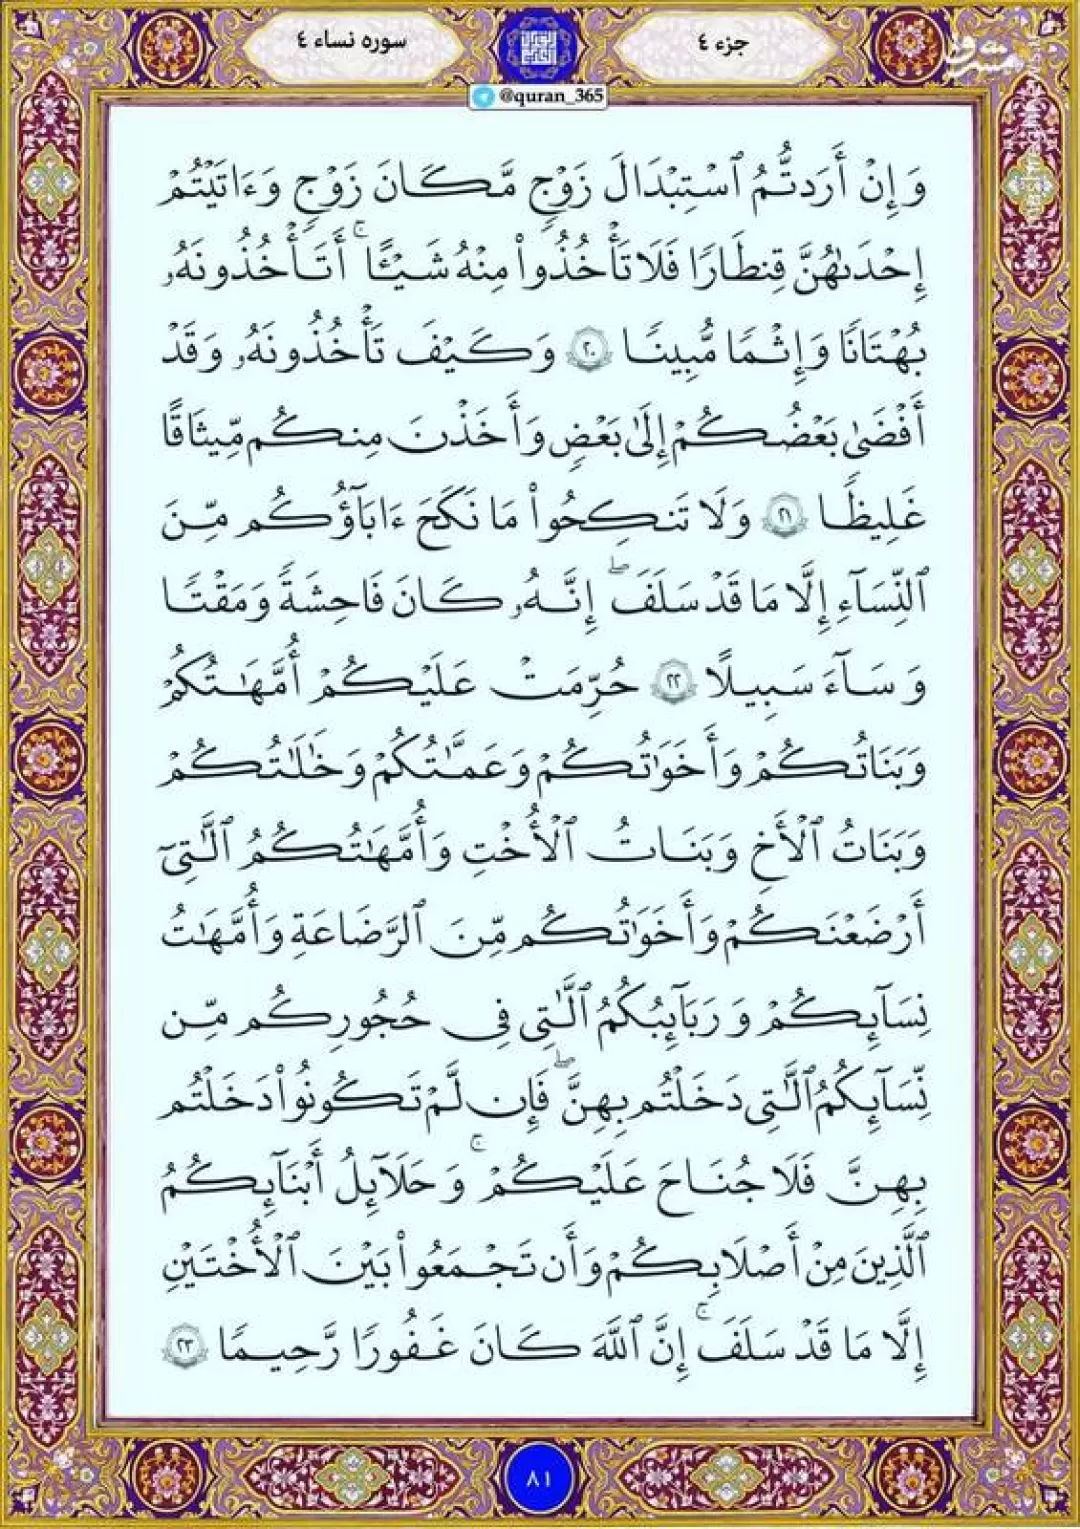 جزء ٤
سوره نساء ٤
@quran_365
وَإِنْ أَرَدتُّمُ ٱسْتِبْدَالَ زَوْجٍ مَّكَانَ زَوْجٍ وَءَاتَيْتُمْ
إِحْدَىٰهُنَّ قِنطَارًا فَلَا تَأْخُذُوا۟ مِنْهُ شَيْـًٔا ۚ أَتَأْخُذُونَهُۥ
بُهْتَـٰنًا وَإِثْمًا مُّبِينًا ٢٠ وَكَيْفَ تَأْخُذُونَهُۥ وَقَدْ
أَفْضَىٰ بَعْضُكُمْ إِلَىٰ بَعْضٍ وَأَخَذْنَ مِنكُم مِّيثَاقًا
غَلِيظًا ٢١ وَلَا تَنكِحُوا۟ مَا نَكَحَ ءَابَآؤُكُم مِّنَ
ٱلنِّسَآءِ إِلَّا مَا قَدْ سَلَفَ ۖ إِنَّهُۥ كَانَ فَاحِشَةً وَمَقْتًا
وَسَآءَ سَبِيلًا ٢٢ حُرِّمَتْ عَلَيْكُمْ أُمَّهَـٰتُكُمْ
وَبَنَاتُكُمْ وَأَخَوَٰتُكُمْ وَعَمَّـٰتُكُمْ وَخَـٰلَـٰتُكُمْ
وَبَنَاتُ ٱلْأَخِ وَبَنَاتُ ٱلْأُخْتِ وَأُمَّهَـٰتُكُمُ ٱلَّـٰتِىٓ
أَرْضَعْنَكُمْ وَأَخَوَٰتُكُم مِّنَ ٱلرَّضَاعَةِ وَأُمَّهَـٰتُ
نِسَآئِكُمْ وَرَبَـٰٓئِبُكُمُ ٱلَّـٰتِى فِى حُجُورِكُم مِّن
نِّسَآئِكُمُ ٱلَّـٰتِى دَخَلْتُم بِهِنَّ ۖ فَإِن لَّمْ تَكُونُوا۟ دَخَلْتُم
بِهِنَّ فَلَا جُنَاحَ عَلَيْكُمْ ۚ وَحَلَـٰٓئِلُ أَبْنَآئِكُمُ
ٱلَّذِينَ مِنْ أَصْلَـٰبِكُمْ وَأَن تَجْمَعُوا۟ بَيْنَ ٱلْأُخْتَيْنِ
إِلَّا مَا قَدْ سَلَفَ ۚ إِنَّ ٱللَّهَ كَانَ غَفُورًا رَّحِيمًا ٢٣
٨١